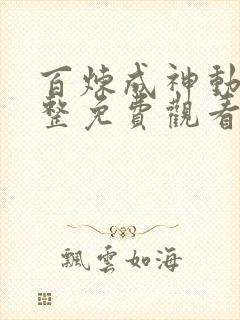 百炼成神動
整免費觀看
飄雲如海